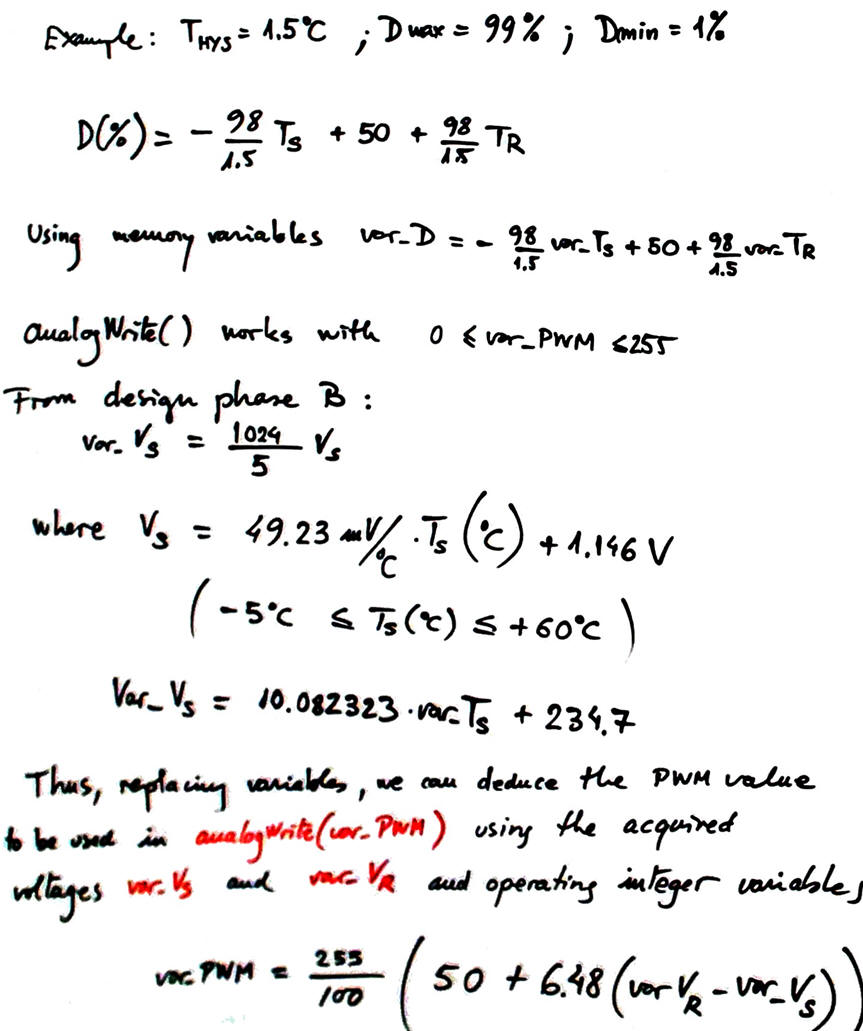 Example: T_HYS = 1.5°C ; Dmax = 99% ; Dmin = 1%
D(%) = - 98/1.5 T_S + 50 + 98/1.5 T_R
Using memory variables var_D = - 98/1.5 var_T_S + 50 + 98/1.5 var_T_R
analogWrite() works with 0 ≤ var_PWM ≤ 255
From design phase B :
var_V_S = 1024/5 V_S
where V_S = 49.23 mV/°C · T_S (°C) + 1.146 V
( -5°C ≤ T_S (°C) ≤ +60°C )
Var_V_S = 10.082323 · var_T_S + 234.7
Thus, replacing variables, we can deduce the PWM value
to be used in analogWrite(var_PWM) using the acquired
voltages var_V_S and var_V_R and operating integer variables,
var_PWM = 255/100 ( 50 + 6.48 ( var V_R - var_V_S ) )